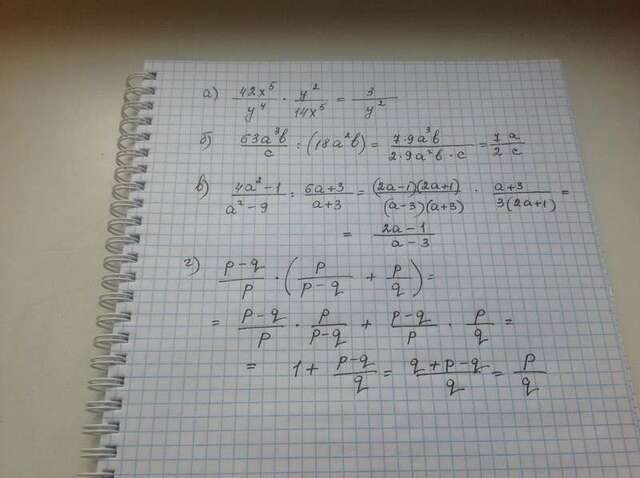 а) 42x⁵/y⁴ · y²/14x⁵ = 3/y²
б) 63a³b/c : (18a²b) = 7·9a³b/2·9a²b·c = 7a/2c
в) 4a²-1/a²-9 : 6a+3/a+3 = (2a-1)(2a+1)/(a-3)(a+3) · a+3/3(2a+1) =
= 2a-1/a-3
г) p-q/p · (p/p-q + p/q) =
= p-q/p · p/p-q + p-q/p · p/q =
= 1 + p-q/q = q+p-q/q = p/q